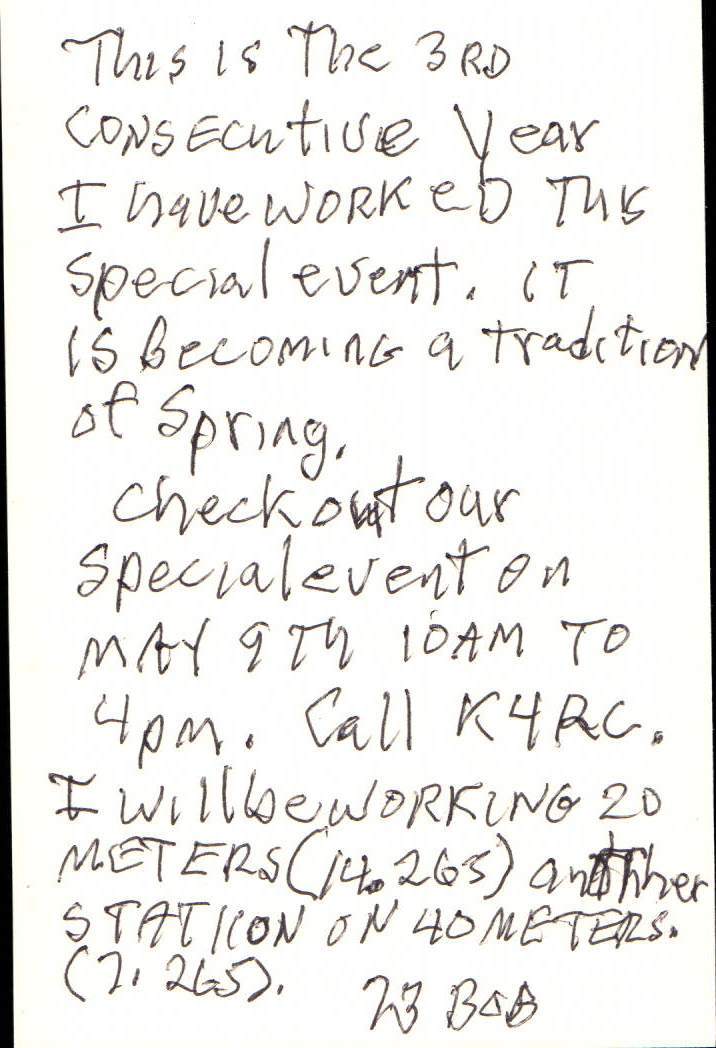 This is The 3RD
CONSECutive Year
I have WORKED This
Special event. IT
is Becoming a tradition
of Spring.
Check out our
Special event on
MAY 9Th 10AM TO
4pm. Call K4RC.
I will be WORKING 20
METERS (14.265) another
STATION ON 40 METERS.
(7.265).
73 BOB